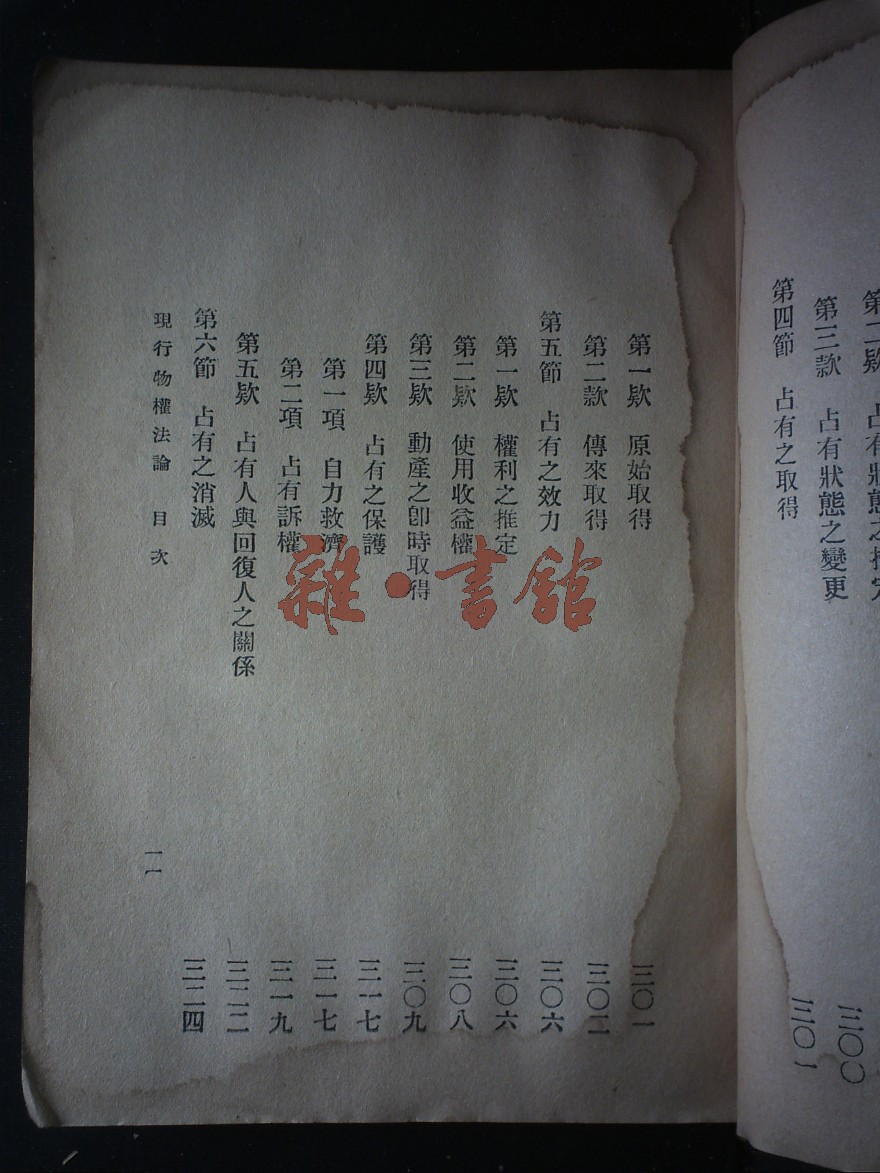 第二欵 占有狀態之推定
第三款 占有狀態之變更 三〇〇
第四節 占有之取得 三〇一
第一欵 原始取得 三〇一
第二款 傳來取得 三〇二
第五節 占有之效力 三〇六
第一欵 權利之推定 三〇六
第二欵 使用收益權 三〇八
第三欵 動產之卽時取得 三〇九
第四欵 占有之保護 三一七
第一項 自力救濟 三一七
第二項 占有訴權 三一九
第五欵 占有人與回復人之關係 三二二
第六節 占有之消滅 三二四
現行物權法論 目次 一一
雜·書館